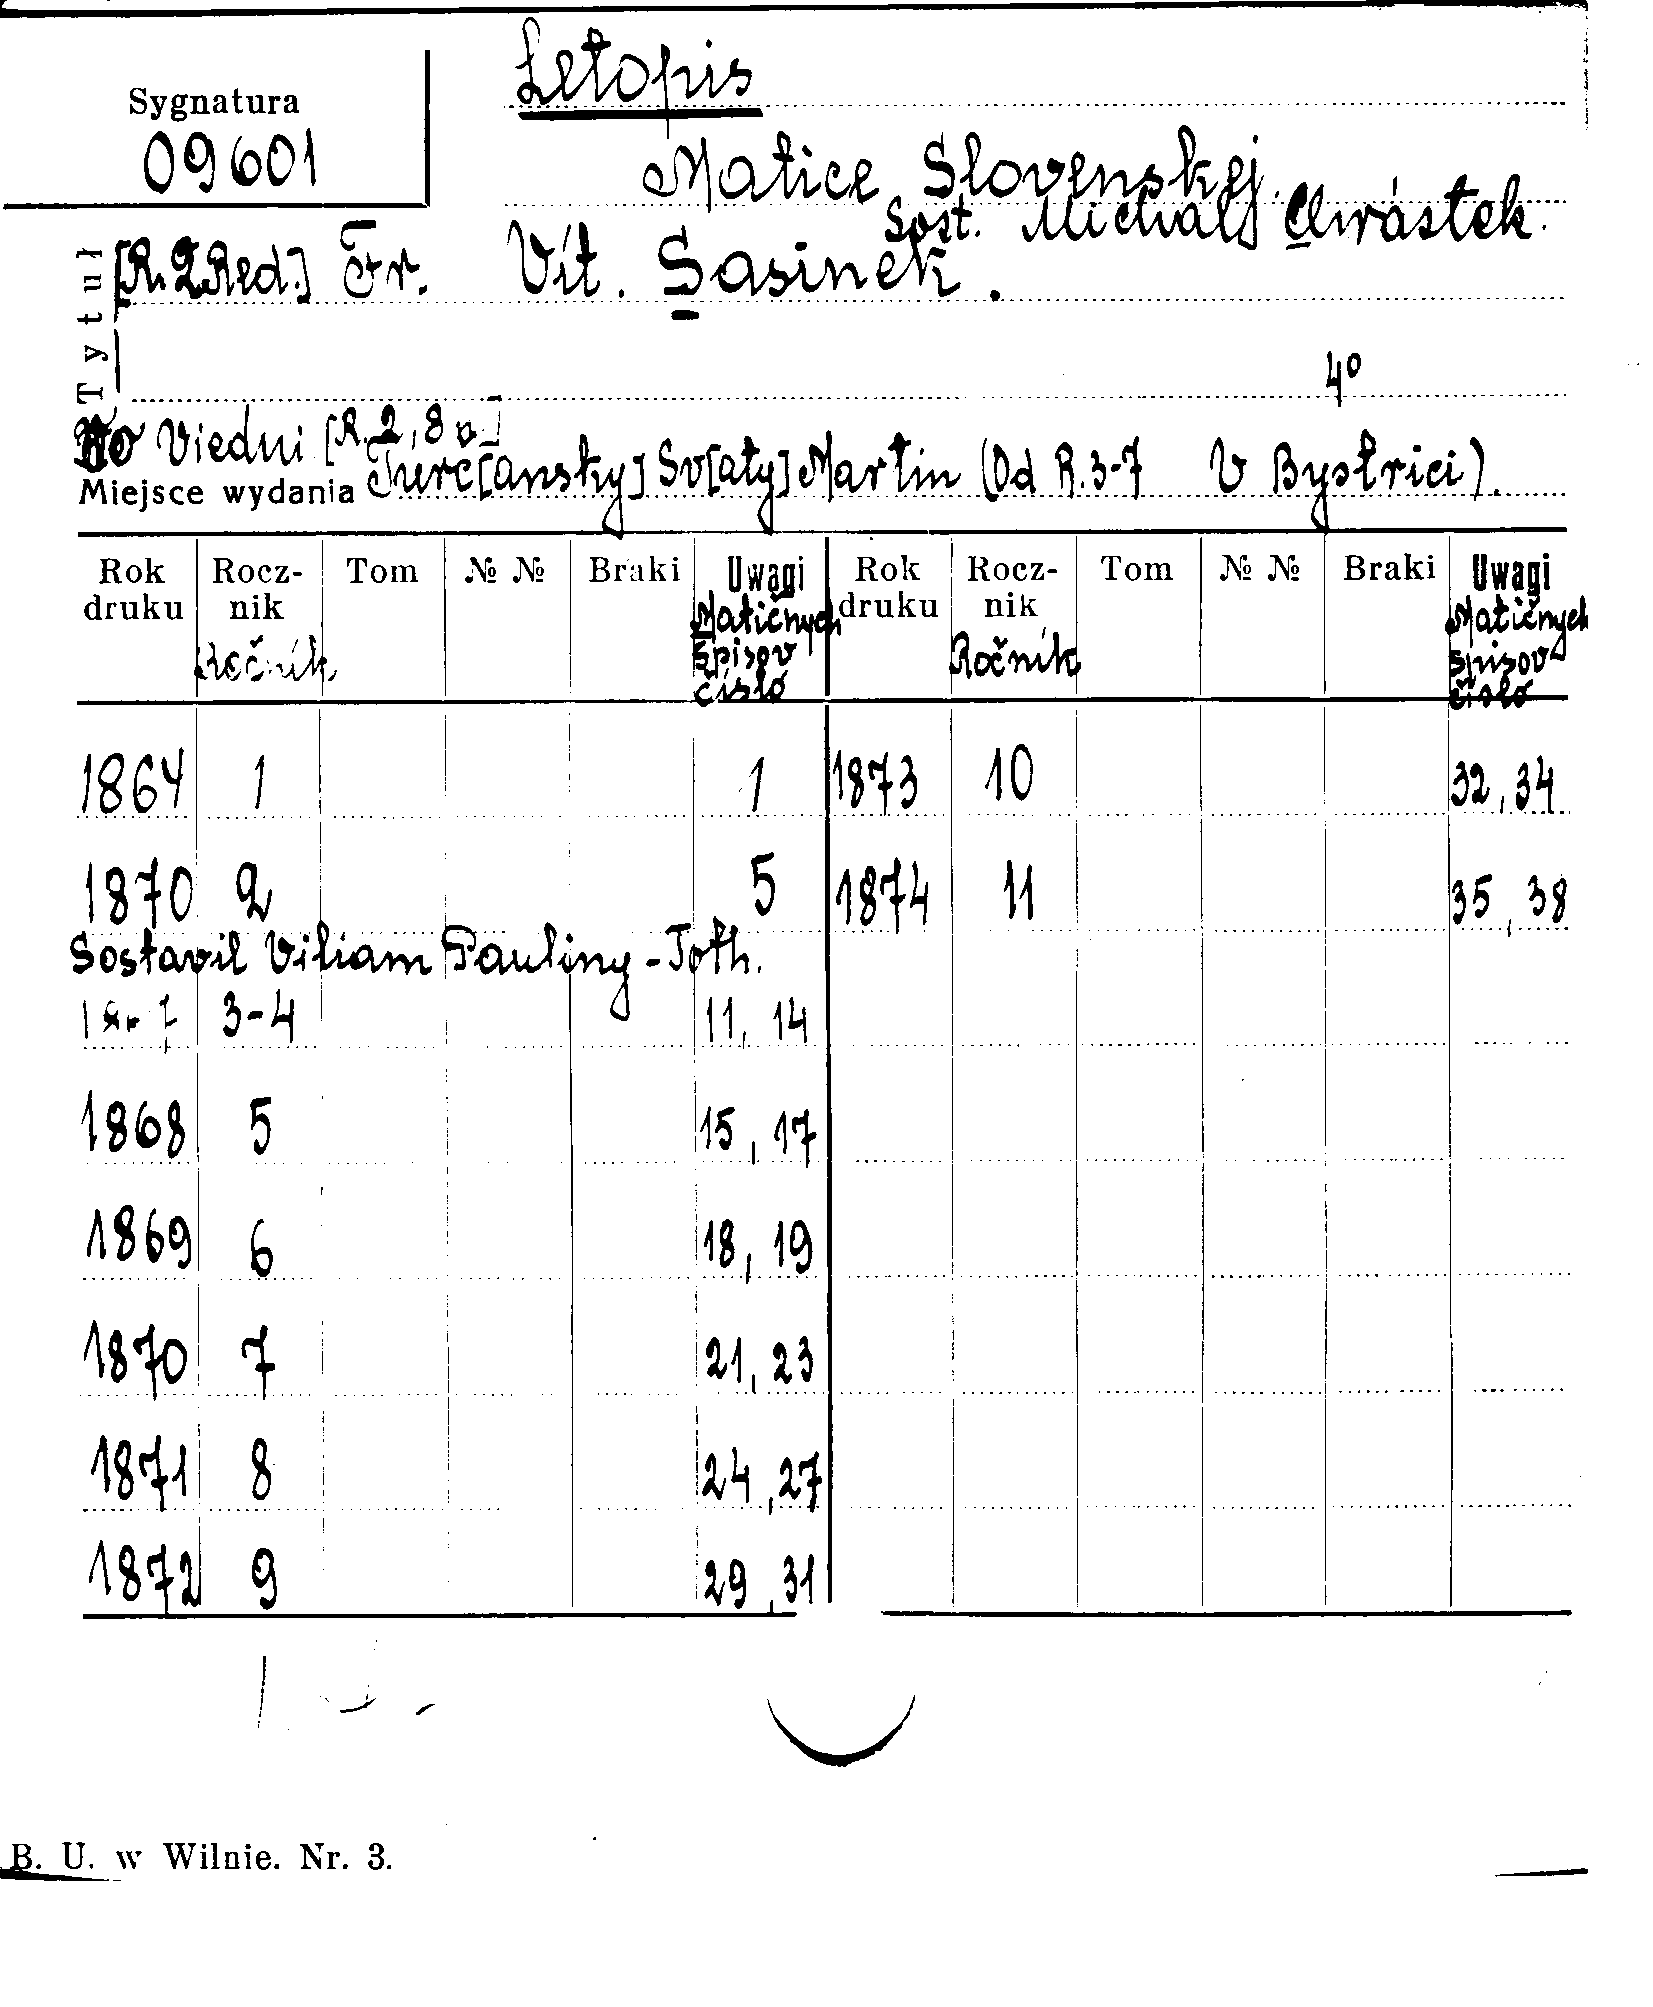 Letopis
Sygnatura
09601
Matice Slovenskej.
Sost. Michal Chrástek.
Tytuł
[R. 2 Red.] Fr. Vít. Sasinek.
4°
Vo Viedni [R. 2, 8 v.]
Miejsce wydania Turč[ansky] Sv[aty] Martin (Od R. 3-7 V Bystrici).
Rok druku Rocz-nik Tom № № Braki Uwagi Rok druku Rocz-nik Tom № № Braki Uwagi
Ročník Matičnych Spisov číslo Ročník Matičnych Spisov číslo
1864 1 1 1873 10 32, 34
1870 2 5 1874 11 35, 38
Sostavil Viliam Pauliny-Toth.
3-4 11, 14
1868 5 15, 17
1869 6 18, 19
1870 7 21, 23
1871 8 24, 27
1872 9 29, 31
B. U. w Wilnie. Nr. 3.